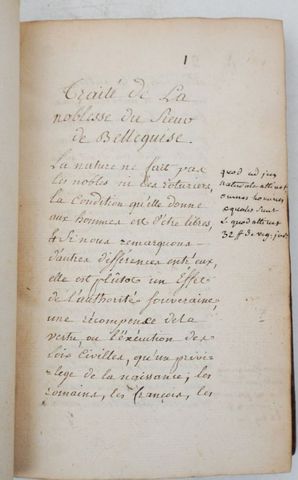 1
Traité de La
noblesse du Sieur
de Belleguise.
La nature ne fait pas
les nobles ni les roturiers,
la Condition qu'elle donne
aux hommes est d'être libres,
& Si nous remarquons
d'autres différences entr'eux,
elle est plûtost un Effet
de l'authorité souveraine,
une récompense de la
vertu, ou l'éxécution des
loix Civilles, qu'un privi-
lege de la naissance; les
romains, les françois, les
quod ad jus
naturale attinet
omnes homines
equales sunt
L. quod attinet
32 ff de reg. jur.